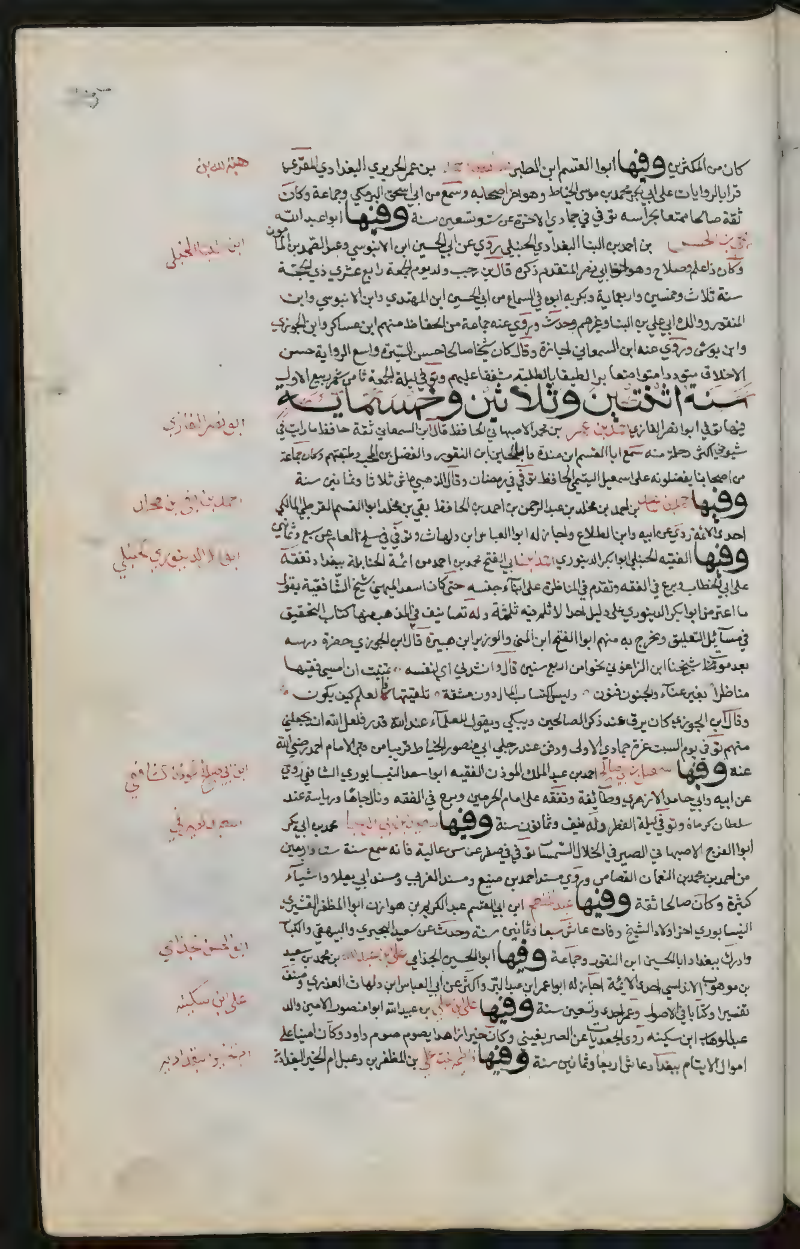 هبة الله بن
كان من المكثرين وفيها ابوا القسم ابن الطبر بن عمر الحريري البغدادي المقري
قرا بالروايات على ابي بكر محمد بن موسى الخياط وهو اخر اصحابه وسمع من ابي اسحق البرمكي وجماعة وكان
ثقة صالحا ممتعا بحواسه توفي في جمادي الاخرة عن ست وتسعين سنة وفيها ابو عبد الله
ابن البنا الحنبلي
يحيى بن الحسن بن احمد بن البنا البغدادي الحنبلي روي عن ابي الحسين ابن الابنوسي وعبد الصمد بن المأمون
وكان ذا علم وصلاح وهو ابي نصر المتقدم ذكره قال بن رجب ولد يوم الجمعة رابع عشري ذي الحجة
سنة ثلاث وخمسين واربعماية وبكر به ابوه في السماع من ابي الحسين ابن المهتدي وابن الابنوسي وابن
النقور ووالده ابي علي بن البنا وغيرهم وحدث وروي عنه جماعة من الحفاظ منهم ابن عساكر وابن الجوزي
وابن بوش وروي عنه ابن السمعاني اجازة وقال كان شيخا صالحا حسن السيرة واسع الرواية حسن
الاخلاق متوددا متواضعا برا لطيفا بالطلبة مشفقا عليهم وتوفي ليلة الجمعة ثامن شهر ربيع الاول
سنة اثنتين وثلاثين وخمسماية
ابو نصر الغازي
فيها توفي ابوا نصر الغازي احمد بن عمر بن محمد الاصبهاني الحافظ قال ابن السمعاني ثقة حافظ ما رايت في
شيوخي اكثر رحلة منه سمع ابا القسم ابن مندة وابا الحسين ابن النقور والفضل بن المحب وطبقتهم وكان جماعة
من اصحابنا يفضلونه على اسمعيل التيمي الحافظ توفي في رمضان وقال الذهبي عاش ثلاثا وثمانين سنة
احمد بن بقي بن مخلد
وفيها احمد بن محمد بن احمد بن مخلد بن عبد الرحمن بن احمد بن الحافظ بقي بن مخلد ابوا القسم القرطبي المالكي
احد الائمة روي عن ابيه وابن الطلاع واجاز له ابوا العباس ابن دلهاث وتوفي في سلخ العام عن سبع وثمانين
الدينوري الحنبلي
وفيها الفقيه الحنبلي ابوا بكر الدينوري احمد بن ابي الفتح محمد بن احمد من ائمة الحنابلة ببغداد تفقه
على ابي الخطاب وبرع في الفقه وتقدم في المناظرة على ابناء جنسه حتى كان اسعد الميهني شيخ الشافعية يقول
ما اعترض ابوا بكر الدينوري على دليل احد الا ثلم فيه ثلمة وله تصانيف في المذهب منها كتاب التحقيق
في مسائل التعليق وتخرج به منهم ابوا الفتح ابن المني والوزير ابن هبيرة قال ابن الجوزي حضرة درسه
بعد موت شيخنا ابن الزاغوني نحوا من اربع سنين قال وانشدني اي لنفسه تمنيت ان امسي فقيها
مناظرا بغير عناء والجنون فنون وليس اكتساب المال دون مشقة تلقيتها فالعلم كيف يكون
وقال ابن الجوزي كان يرق عند ذكر الصالحين ويبكي ويقول للعلماء عند الله قدر فلعل الله ان يجعلني
منهم توفي يوم السبت غرة جمادي الاولى ودفن عند رجلي ابي منصور الخياط قريبا من قبر الامام احمد رضي الله
ابن ابي صالح الموذن الشافعي
عنه وفيها اسمعيل بن ابي صالح احمد بن عبد الملك الموذن الفقيه ابوا سعد النيسابوري الشافعي روي
عن ابيه وابي حامد الازهري وطائفة وتفقه على امام الحرمين وبرع في الفقه ونال جاها ورياسة عند
سلطان كرمان وتوفي ليلة الفطر وله نيف وثمانون سنة وفيها سعيد بن ابي الرجا محمد بن ابي بكر
ابوا الفرج الاصبهاني الصيرفي الخلال السمسار توفي في صفر عن سن عالية فانه سمع سنة ست واربعين
من احمد بن محمد بن النعمان القصاص وروي مسند احمد بن منيع ومسند العدني ومسند ابي يعلا واشياء
كثيرة وكان صالحا ثقة وفيها عبد المنعم ابن ابي القسم عبد الكريم بن هوازن ابوا المظفر القشيري
النيسابوري اخر اولاد الشيخ وفات عاش سبعا وثمانين سنة وحدث عن سعيد البحيري والبيهقي والكبار
ابو الحسن الجذامي
وادرك ببغداد ابا الحسين ابن النقور وجماعة وفيها ابوا الحسن الجذامي علي بن عبد الله بن محمد بن سعيد
بن موهوب الاندلسي احد الائمة اجاز له ابوا عمر ابن عبد البر واكثر عن ابي العباس ابن دلهاث العذري وصنف
علي ابن سكينه
تفسيرا وكتابا في الاصول وعمر احدي وتسعين سنة وفيها علي بن علي بن عبيد الله ابوا منصور الامين والد
عبد الوهاب ابن سكينه روي الجعديات عن الصريفيني وكان خيرا زاهدا يصوم صوم داود وكان امينا على
اموال الايتام ببغداد عاش اربعا وثمانين سنة وفيها فاطمة بنت علي بن المظفر بن دعبل ام الخير البغدادية